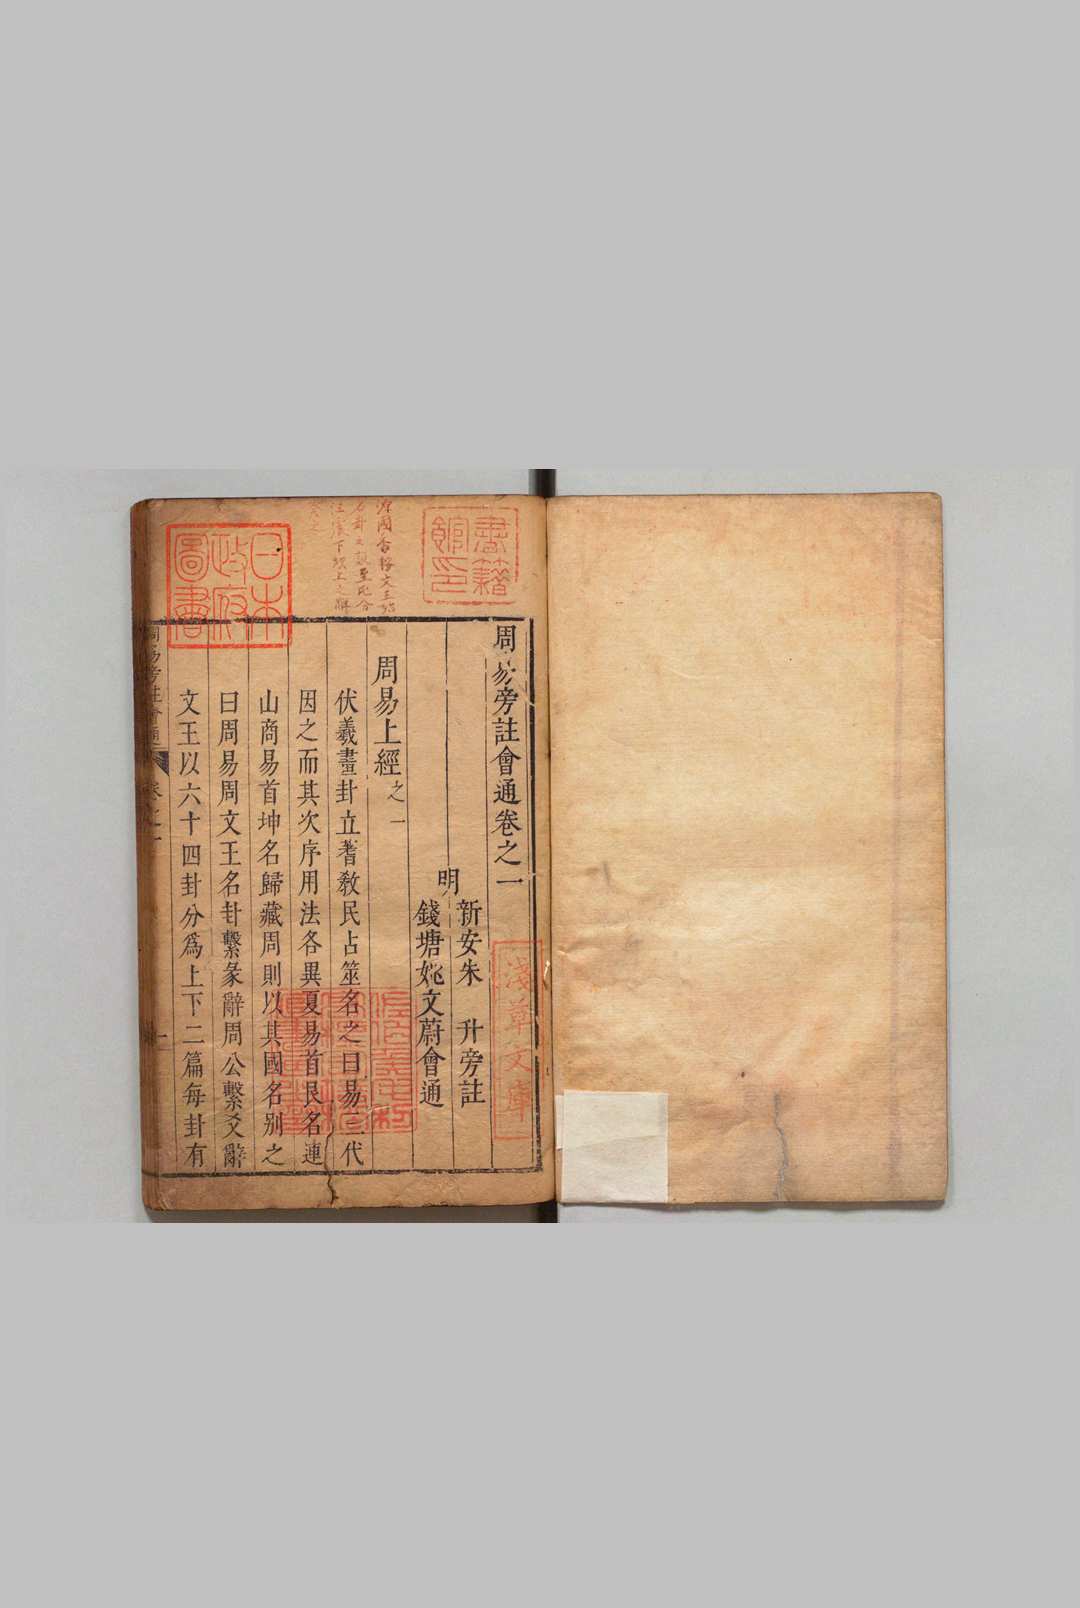 周易旁註會通卷之一
明
新安朱 升旁註
錢塘姚文蔚會通
周易上經之一
伏羲畫卦立蓍敎民占筮名之曰易三代
因之而其次序用法各異夏易首艮名連
山商易首坤名歸藏周則以其國名别之
曰周易周文王名卦繫彖辭周公繫爻辭
文王以六十四卦分爲上下二篇每卦有
書籍
館印
淺草文庫
日本
政府
圖書
周易旁註會通
卷之一
一